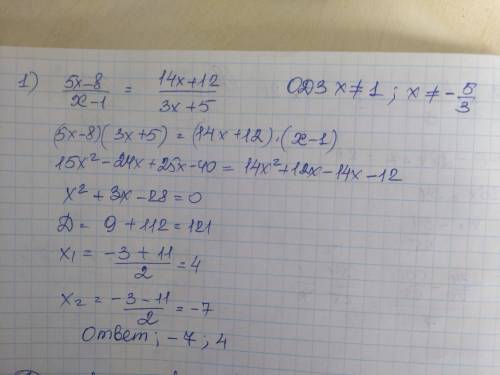 1) (5x-8)/(x-1) = (14x+12)/(3x+5) ОДЗ x≠1 ; x≠-5/3
(5x-8)(3x+5) = (14x+12)·(x-1)
15x²-24x+25x-40 = 14x²+12x-14x-12
x²+3x-28=0
D = 9+112=121
x₁ = (-3+11)/2 = 4
x₂ = (-3-11)/2 = -7
Ответ ; -7 ; 4